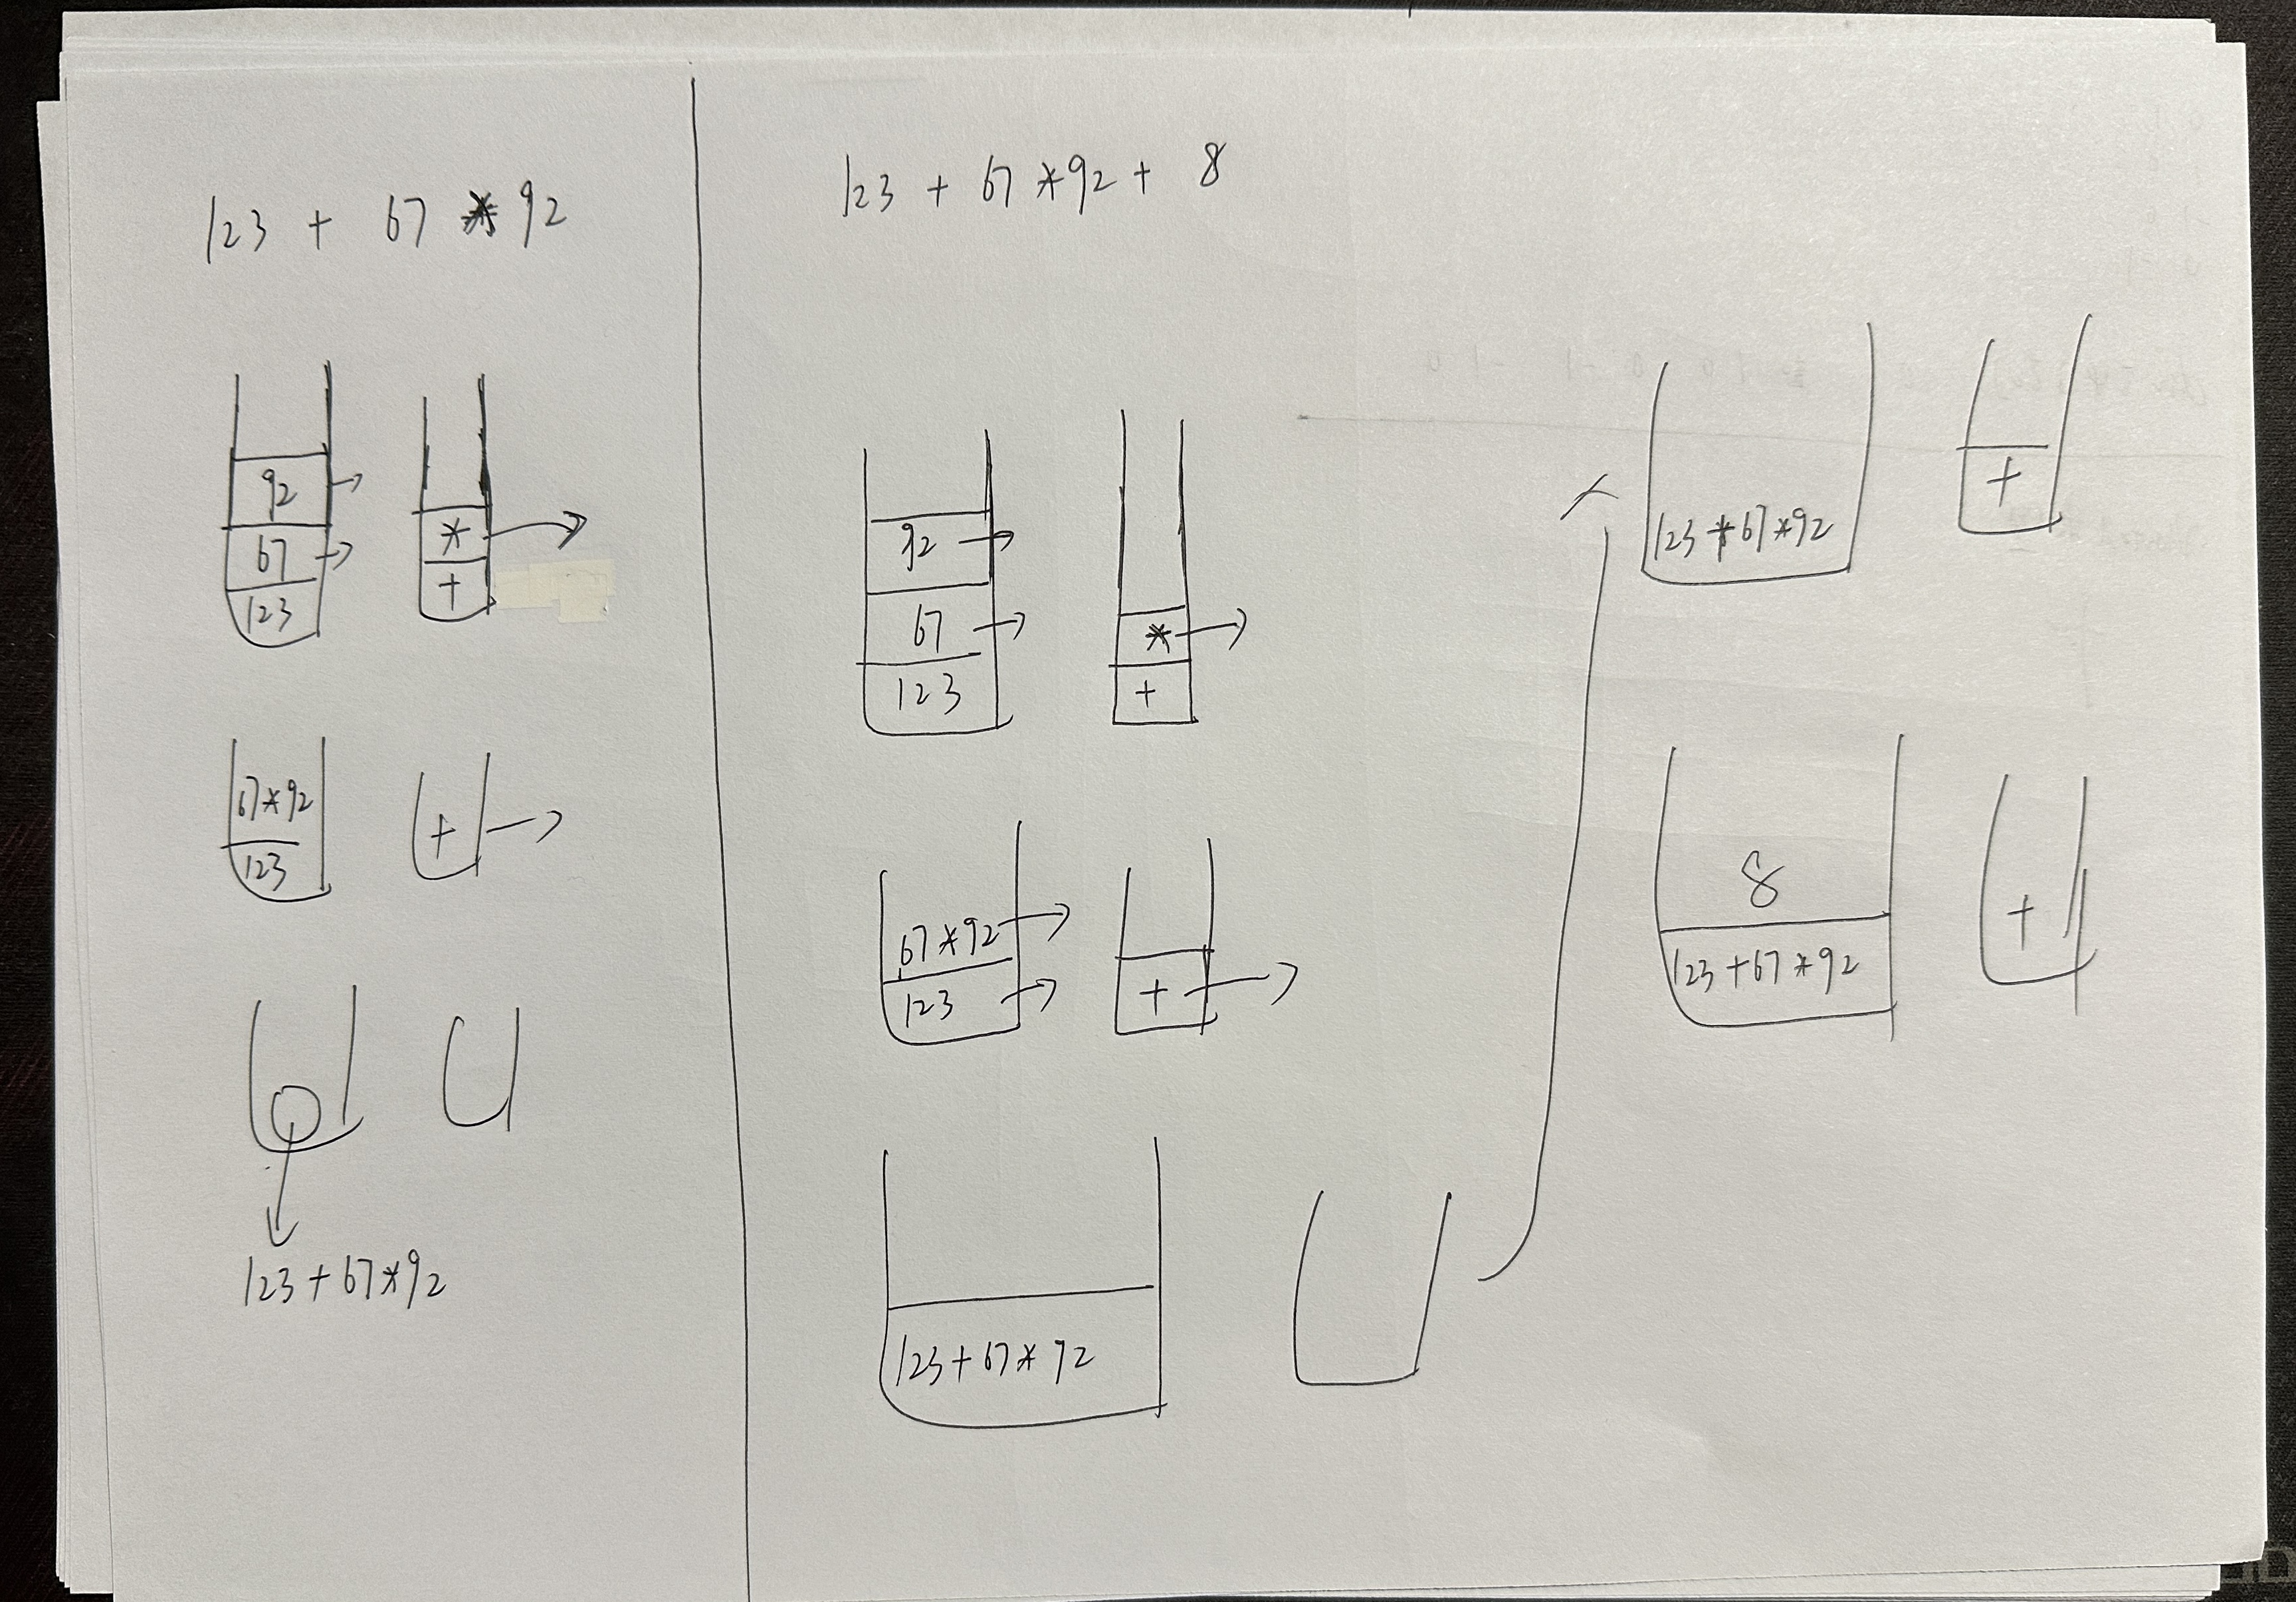 123 + 67 * 92
92
*
67
+
123
67*92
+
123
123+67*92
123 + 67 *92 + 8
92
67
*
123
+
67*92
123
+
123+67* 92
+
123+67*92
8
+
123+67*92